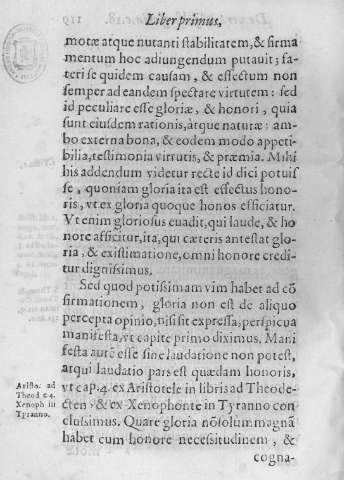 Liber primus,
motæ atque nutanti stabilitatem, & firma
mentum hoc adiungendum putauit; fa-
teri se quidem causam, & effectum non
semper ad eandem spectare virtutem: sed
id peculiare esse gloriæ, & honori, quia
sunt eiusdem rationis, atque naturæ: am-
bo externa bona, & eodem modo appeti-
bilia, testimonia virtutis, & præmia. Mihi
his addendum videtur recte id dici potuis
se, quoniam gloria ita est effectus hono-
ris, vt ex gloria quoque honos efficiatur.
Vt enim gloriosus euadit, qui laude, & ho
nore afficitur, ita, qui cæteris antestat glo-
ria, & existimatione, omni honore credi-
tur dignissimus.
Sed quod potissimam vim habet ad cō
firmationem, gloria non est de aliquo
percepta opinio, nisi sit expressa, perspicua
manifesta, vt capite primo diximus. Mani
festa autē esse sine laudatione non potest,
atqui laudatio pars est quædam honoris,
vt cap. 4. ex Aristotele in libris ad Theode-
cten & ex Xenophonte in Tyranno con
clusimus. Quare gloria nōsolum magnā
habet cum honore necessitudinem, &
cogna-
Aristo. ad
Theod c 4.
Xenoph in
Tyranno.